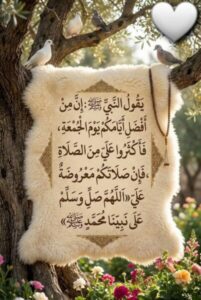 يَقُولُ النَّبِيُّ ﷺ: إِنَّ مِنْ
أَفْضَلِ أَيَّامِكُمْ يَوْمَ الْجُمُعَةِ،
فَأَكْثِرُوا عَلَيَّ مِنَ الصَّلَاةِ
،فَإِنَّ صَلَاتَكُمْ مَعْرُوضَةٌ
عَلَيَّ «اَللّٰهُمَّ صَلِّ وَسَلِّمْ
عَلَى نَبِيِّنَا مُحَمَّدٍ ﷺ»